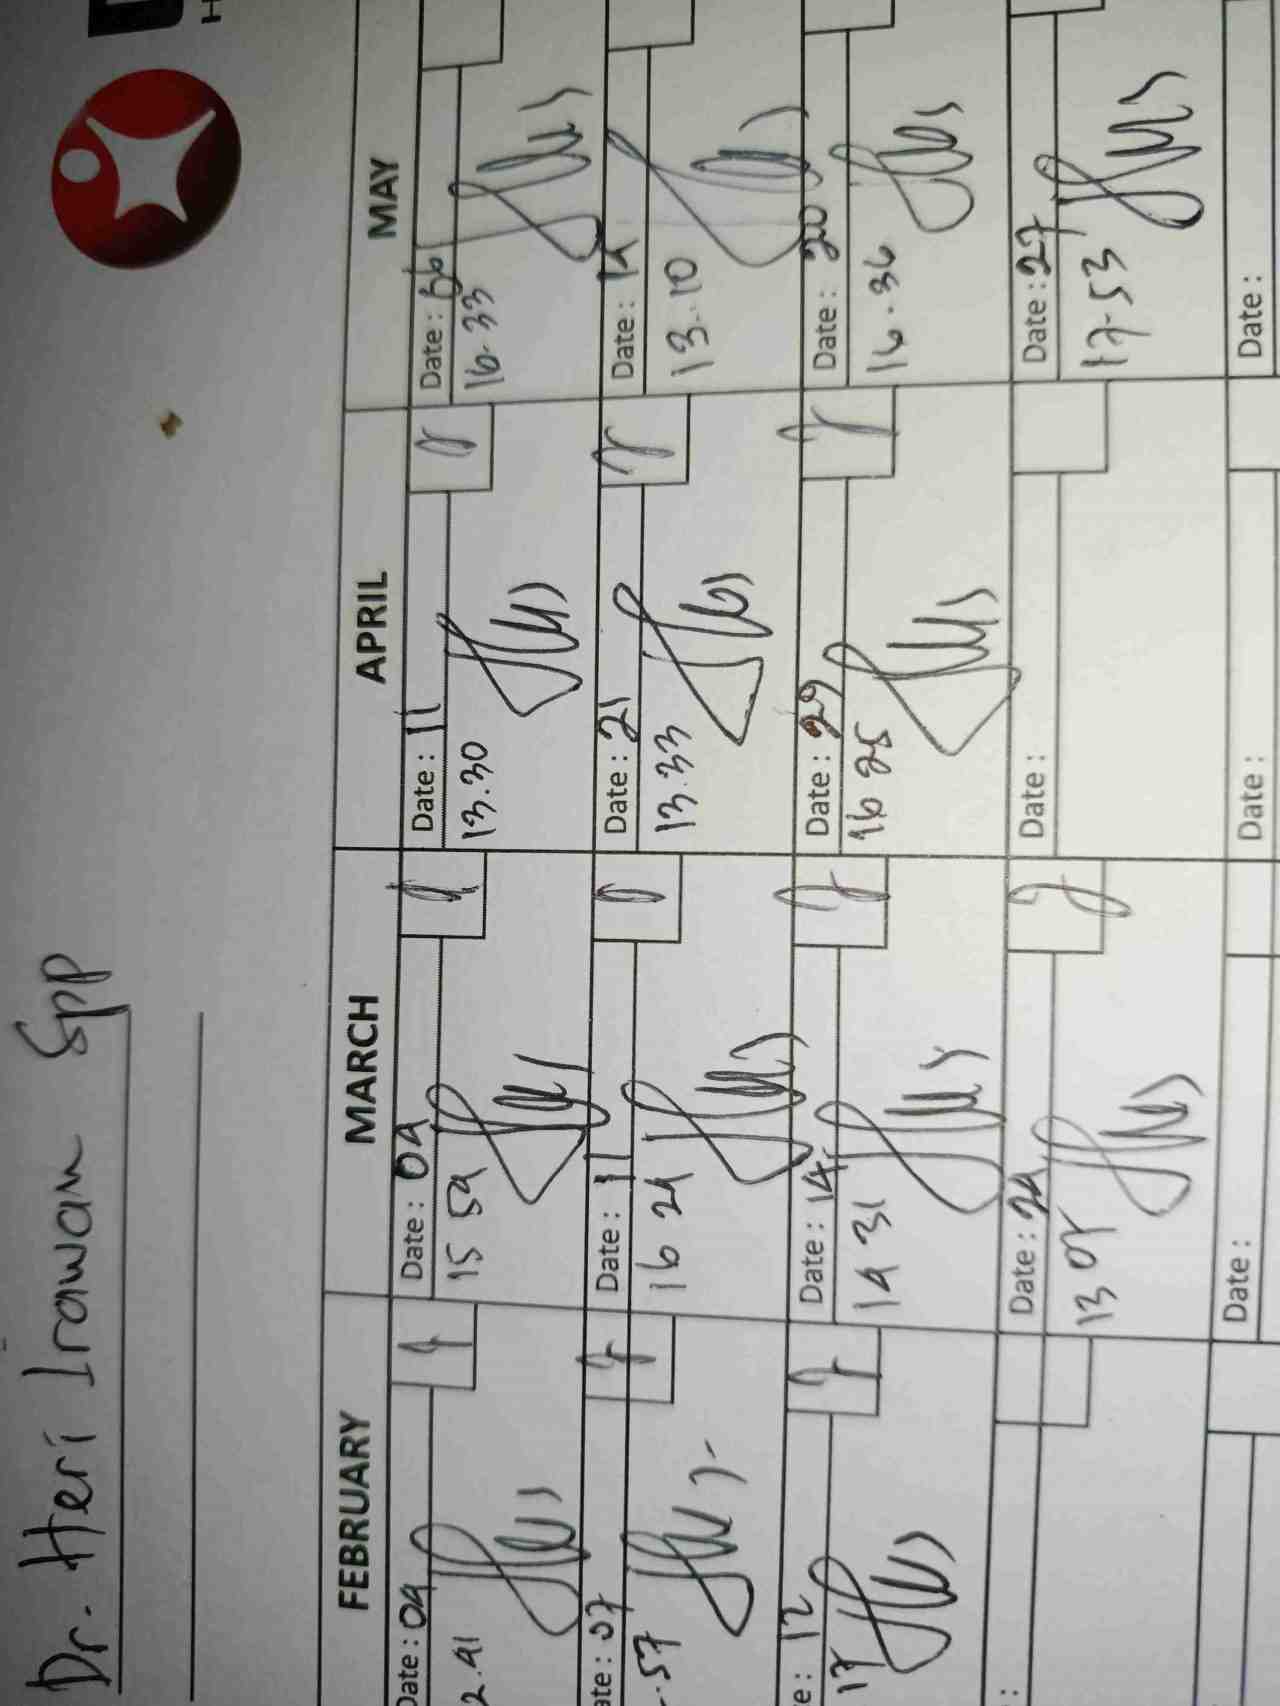 Dr. Heri Irawan Spp
FEBRUARY MARCH APRIL MAY
Date: 04 Date: 04 Date: 11 Date: 06
2.41 15 54 13.30 16.33
ate: 07 Date: 11 Date: 21 Date: 12
.57 16 24 13.33 13.10
e: 12 Date: 14 Date: 29 Date: 20
17 14 31 16 25 16.36
: Date: 24 Date: Date: 27
13 05 17.53
Date: Date: Date: